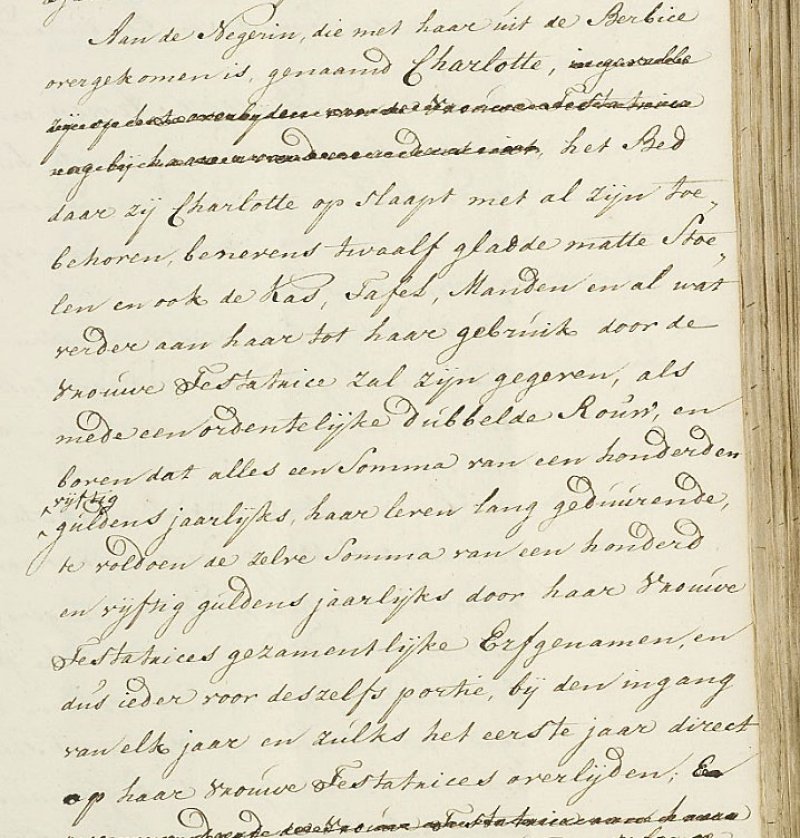 Aan de Negerin, die met haar uit de Berbice
overgekomen is, genaamd Charlotte, ingevalle
zije op het overlijden van de Vrouwe Testatrice
nog bij haar, het Bed
daar zij Charlotte op slaapt met al zijn toe„
behoren, benevens twaalf gladde matte Stoe„
len en ook de Kas, Tafel, Manden en al wat
verder aan haar tot haar gebruik door de
Vrouwe Testatrice zal zijn gegeven, als
mede een ordentelijke dubbelde Rouw, en
boven dat alles een Somma van een honderd en
vijftig
guldens jaarlijks, haar leven lang geduurende,
te voldoen de zelve Somma van een honderd
en vijftig guldens jaarlijks door haar Vrouwe
Testatrices gezamentlijke Erfgenamen, en
dus ieder voor deszelfs portie, bij den ingang
van elk jaar en zulks het eerste jaar direct
op haar Vrouwe Testatrices overlijden; En
de Vrouwe Testatrice aan haar